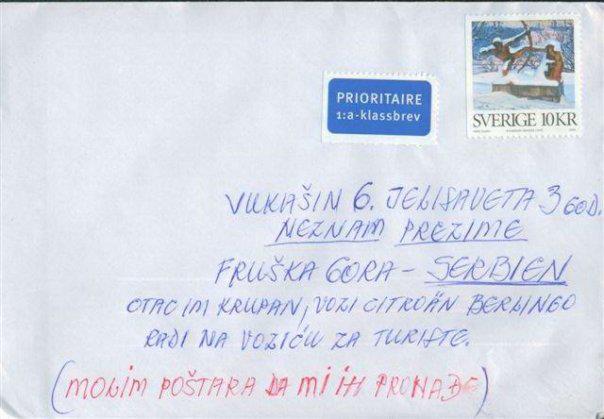 PRIORITAIRE
1:a-klassbrev
SVERIGE 10KR
VUKAŠIN 6. JELISAVETA 3 GOD.
NEZNAM PREZIME
FRUŠKA GORA - SERBIEN
OTAC IM KRUPAN, VOZI CITROÄN BERLINGO
RADI NA VOZIĆU ZA TURISTE.
(MOLIM POŠTARA DA MI IH PRONAĐE)